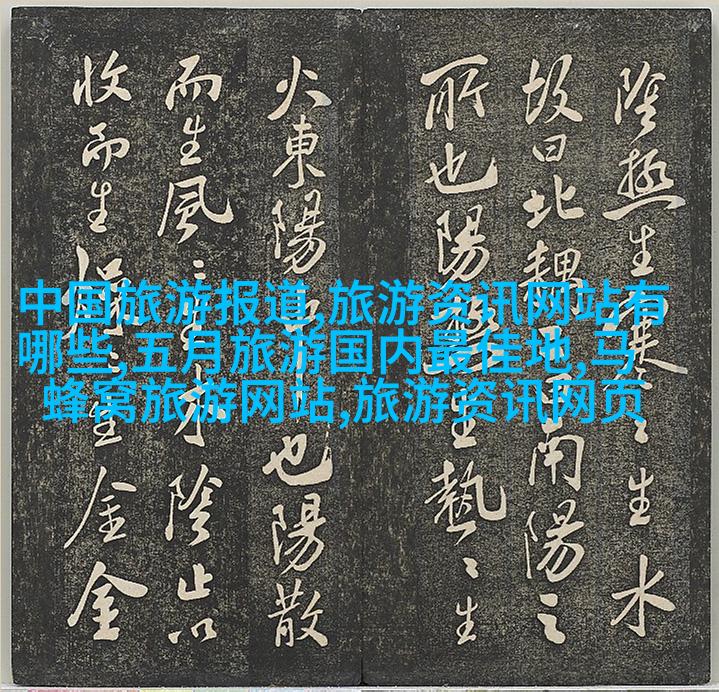 中国旅游报道,旅游资讯网站有
哪些,五月旅游国内最佳地,马
蜂窝旅游网站,旅游资讯网页
陰極生寒〻生水
故曰北魏南陽之
所也陽極生熱〻生
火東陽也陽散
而生風〻生木陰止以
收而生燥〻生金金